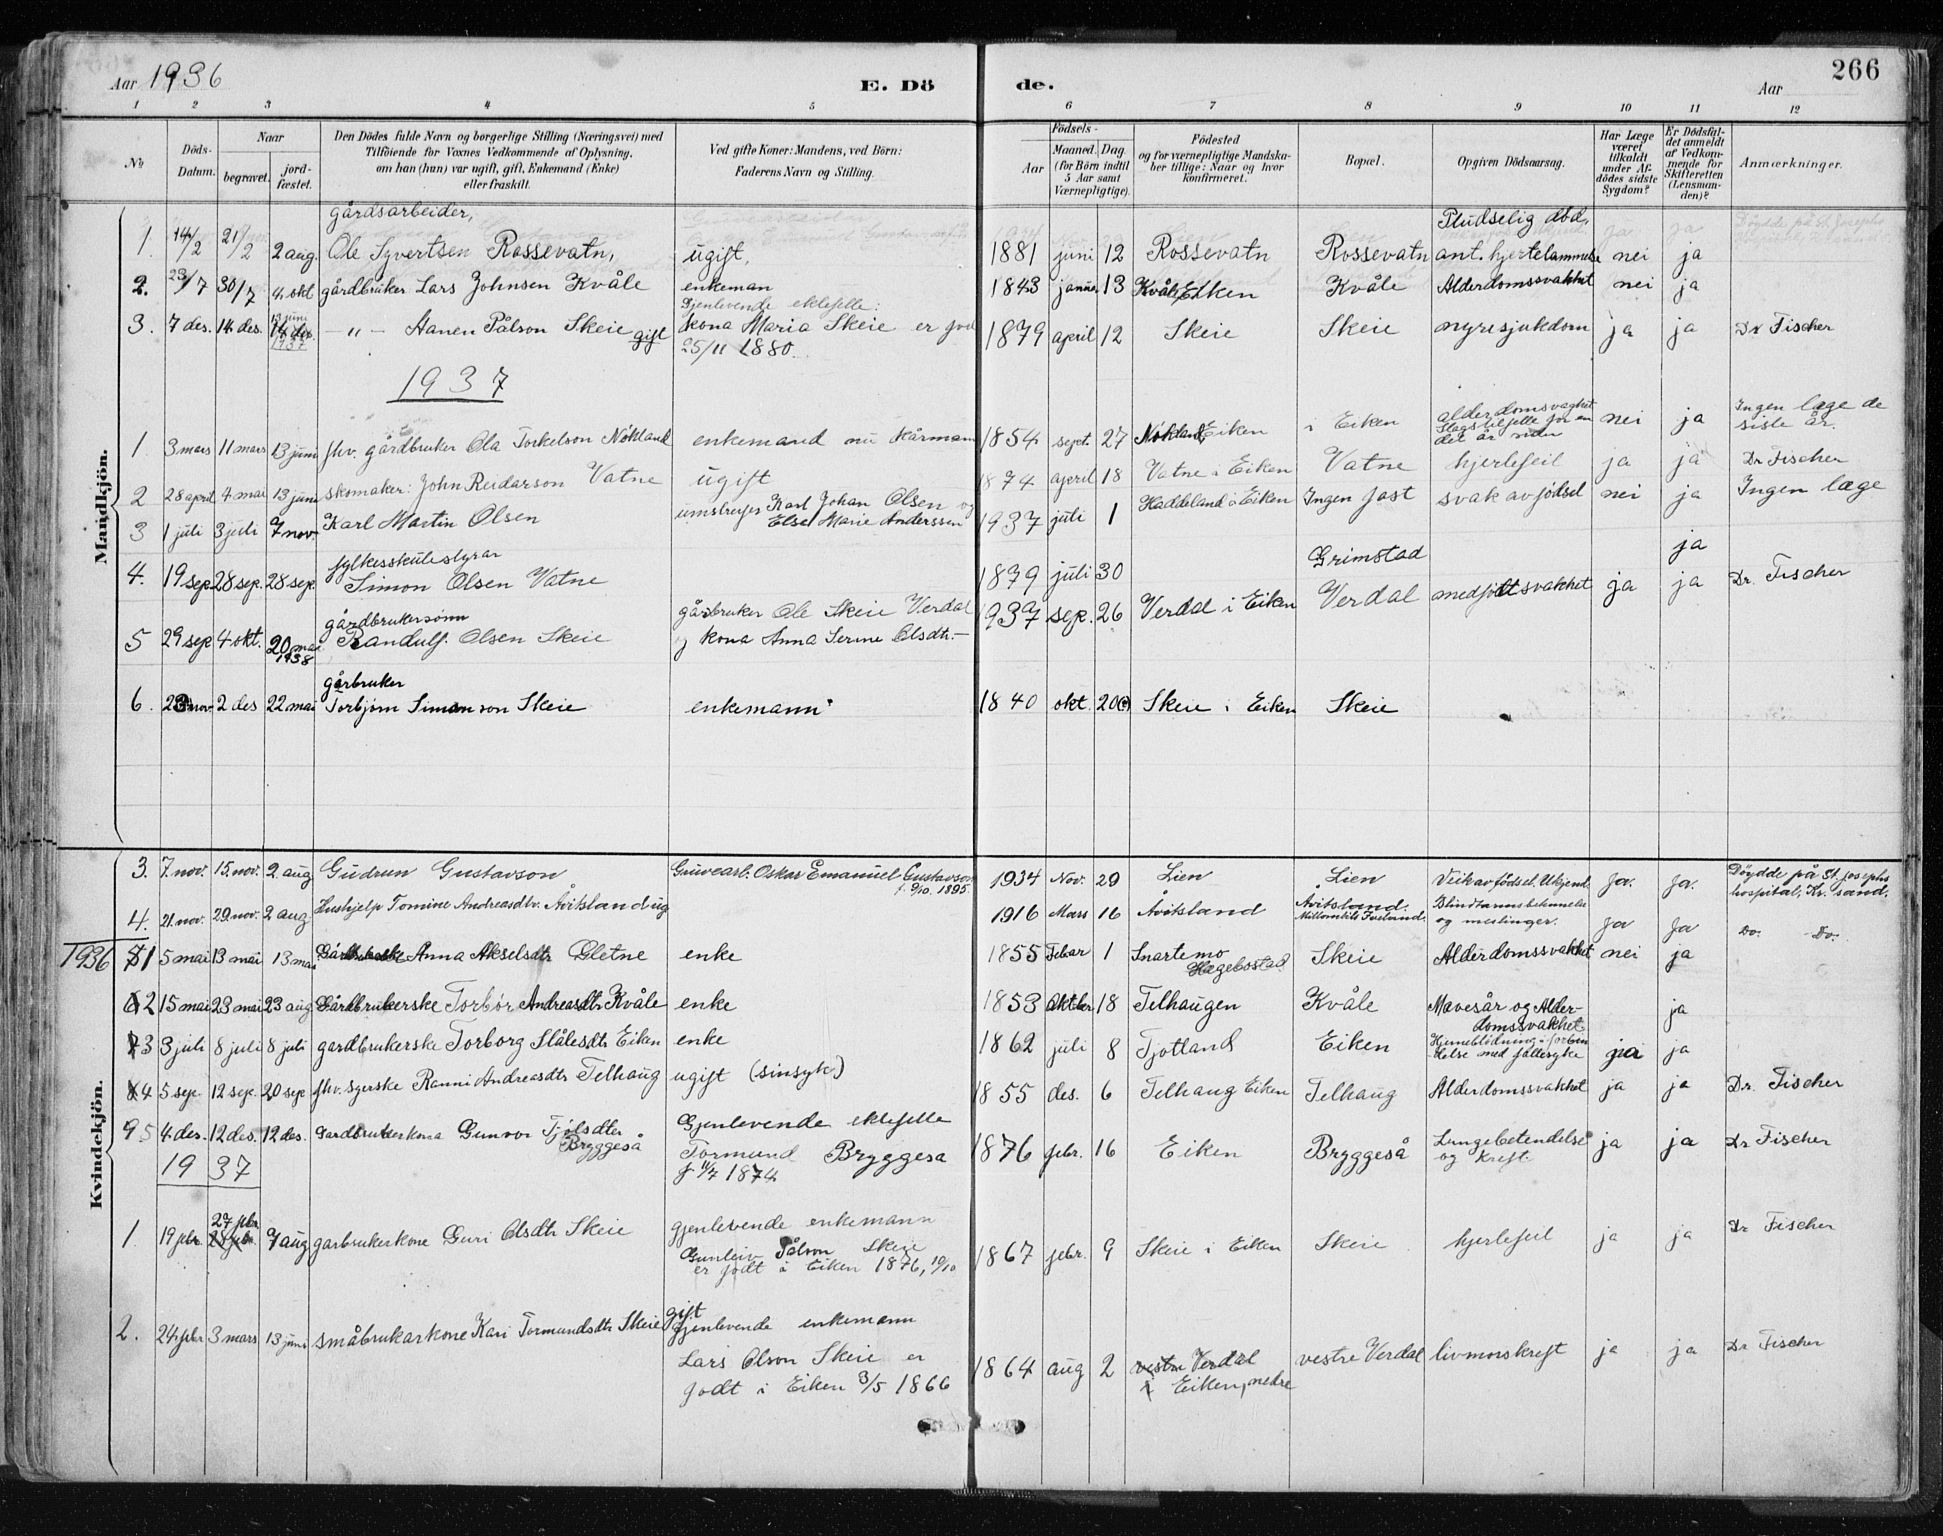 Aar 1936 E. Dö de. Aar 266
1 2 3 4 5 6 7 8 9 10 11 12
No
Döds-Datum.
Naar
begravet.
jord-fæstet.
Den Dödes fulde Navn og borgerlige Stilling (Næringsvei) med
Tilföiende for Voxnes Vedkommende af Oplysning,
om han (hun) var ugift, gift, Enkemand (Enke)
eller fraskilt.
Ved gifte Koner: Mandens, ved Börn:
Faderens Navn og Stilling.
Födsels-
Aar
Maaned. Dag.
(for Börn indtil
5 Aar samt
Værnepligtige).
Födested
og for værnepligtige Mandska-
ber tillige: Naar og hvor
konfirmeret.
Bopæl.
Opgiven Dödsaarsag.
Har Læge
været
tilkaldt
under Af-
dödes sidste
Sygdom?
Er Dödsfal-
det anmeldt
af Vedkom-
mende for
Skifteretten
(Lensman-
den)?
Anmærkninger.
Mandkjön.
gårdsarbeider, Pludselig död,
1. 14/2 21/2 2 aug. Ole Syvertsen Rossevatn, ugift, 1881 juni 12 Rossevatn Rossevatn ant. hjertelammelse nei ja
2. 23/7 30/7 4. okt gårdbruker Lars Johnsen Kvåle enkeman 1843 januar 13 Kvåle Eiken Kvåle Alderdomssvakhet nei ja
Gjenlevende ektefelle:
3. 7 des. 14 des. 13 juni 1937 -"- Hanen Pålson Skeie gift kona Maria Skeie er fød 1879 april 12 Skeie Skeie nyresjukdom ja ja Dr Fischer
25/11 1880.
1937
1 3 mars 11 mars 13 juni fhv. gårdbruker Ola Torkelson Nökland enkemand nu kårmann 1854 sept. 27 Nökland, Eiken i Eiken alderdomsvaghet nei ja Ingen læge de
Slagstilfelle for en siste år.
det år siden
2 28 april 4 mai 13 juni skomaker: John Reidarson Vatne ugift 1874 april 18 Vatne i Eiken Vatne hjertefeil ja ja Dr Fischer
3 1 juli 3 juli 7 nov. Karl Martin Olsen umstreyfer Karl Johan Olsen og 1937 juli 1 Haddeland i Eiken Ingen fast svak av födsel nei ja Ingen læge
Else Marie Anderssen
fylkesskulestyrar
4. 19 sep. 28 sep. 28 sep. Simon Olsen Vatne 1879 juli 30 Grimstad ja
gårdbrukersønn
5 29 sep 4 okt. 20 mai 1938 Randulf Olsen Skeie gårbruker Ole Skeie Verdal 1937 sep. 26 Verdal i Eiken Verdal medfödt svakhet ja ja Dr. Fischer
og kona Anna Serine Olsdtr. -
gårbruker
6. 23 nov 2 des 22 mai Torbjørn Simonson Skeie enkemann 1840 okt. 20 Skeie i Eiken Skeie
Kvindekjön.
3. 7. nov. 15. nov. 2. aug Gudrun Gustavson Gruvearb. Oskar Emanuel Gustavson 1934 Nov. 29 Lien Lien Veik av födsel. Ukjend ja. ja. Döydde på St. Josephs
f. 9/10. 1895. hospital, Kr. sand.
4. 21. nov. 29. nov. 2 aug Hushjelp Tomine Andreasdtr. Åvitsland ug. 1916 Mars 16 Åvitsland Åvitsland. Blindtarmsbetennelse ja ja Do. Do.
og meslinger.
1936 1 5 mai 13 mai 13 mai Anna Akselsdtr Gletne enke 1855 Febar 1 Snartemo Skeie Alderdomssvakhet nei ja
Hægebostad
2 15 mai 23 mai 23 aug Gårdbrukerske Torbör Andreasdtr Kvåle enke 1853 Oktber 18 Telhaugen Kvåle Mavesår og Alder- ja
domssvakhet
3 3 juli 8 juli 8 juli gardbrukerske Torborg Ståledtr Eiken enke 1862 juli 8 Tjotland Eiken Hjerneblödning i forbin ja ja
delse med fallesyke
4 5 sep. 12 sep. 20 sep fhv. syerske Ranni Andreasdtr Telhaug ugift (sinsyk) 1855 des. 6 Telhaug Eiken Telhaug Alderdomssvakhet ja ja Dr. Fischer
5 4. des. 12 des. 12 des. Gardbrukerkona Gunvor Fjelsdtr Gjenlevende ektefelle 1876 febr. 16 Eiken Bryggeså Lungebetendelse ja ja Dr Fischer
Bryggeså Tormund Bryggesa og kreft.
f 11/7 1874
1937
1. 19 febr. 27 febr 7 aug garbrukerkone Guri Olsdtr Skeie gjenlevende enkemann 1867 febr. 9 Skeie i Eiken Skeie hjertefeil ja ja Dr Fischer
Gunleiv Pålson Skeie
er født i Eiken 1876, 10/10
2. 24 febr 3 mars 13 juni småbrukarkone Kari Tormundsdtr Skeie gift
gjenlevende enkemann
Lars Olson Skeie er 1864 aug 2 vestre Verdal vestre Verdal livmorskreft ja ja Dr Fischer
födt i Eiken 3/5 1866 i Eiken, nedre